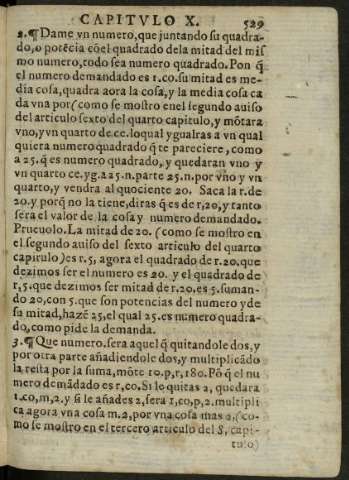 CAPITVLO X. 529
2.¶ Dame vn numero, que juntando su quadra-
do, o potẽcia cõ el quadrado de la mitad del mis
mo numero, todo sea numero quadrado. Pon q̃
el numero demandado es 1.co. su mitad es me-
dia cosa, quadra aora la cosa, y la media cosa ca
da vna por (como se mostro en el segundo auiso
del articulo sexto del quarto capitulo, y mõtara
vno, y vn quarto de ce. lo qual ygualras a vn qual
quiera numero quadrado q̃ te pareciere, como
a 25. q̃ es numero quadrado, y quedaran vno y
vn quarto ce. yg. a 25. n. parte 25. n. por vno y vn
quarto, y vendra al quociente 20. Saca la r. de
20. y porq̃ no la tiene, diras q̃ es de r, 20, y tanto
sera el valor de la cosa y numero demandado.
Prueuolo. La mitad de 20. (como se mostro en
el segundo auiso del sexto articulo del quarto
capitulo) es r. 5, agora el quadrado de r. 20. que
dezimos ser el numero es 20. y el quadrado de
r, 5. que dezimos ser mitad de r. 20. es 5. suman-
do 20, con 5. que son potencias del numero y de
su mitad, hazẽ 25, el qual 25. es numero quadra-
do, como pide la demanda.
3.¶ Que numero. sera aquel q̃ quitandole dos, y
por otra parte añadiendole dos, y multiplicãdo
la resta por la suma, mõte 10. p, r, 180. Põ q̃ el nu
mero demãdado es 1, co, Si le quitas 2, quedara
1. co, m, 2. y si le añades 2, sera 1, co, p, 2. multipli
ca agora vna cosa m. 2, por vna cosa mas 2, (co-
mo se mostro en el tercero articulo del 8, capi-
tulo)